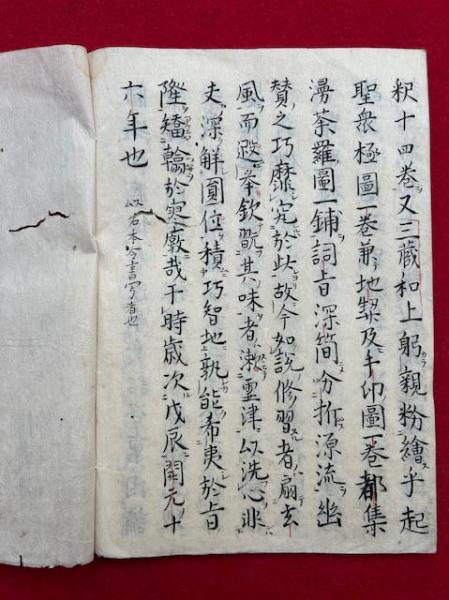 釈十四巻又三蔵和上躬親粉繪乎起
聖衆極圖一巻兼地契及手印圖一巻都集
湯荼羅圖一鋪詞旨深簡分析源流幽
賛之巧靡究於此故今如說修習者扇玄
風而遐奉欽翫其味者漱霊津以洗心非
丈深解圓位積巧智地孰能希夷於旨
隆矯翰於寥廓哉于時歳次戊辰開元十
六年也
以右本令書写者也